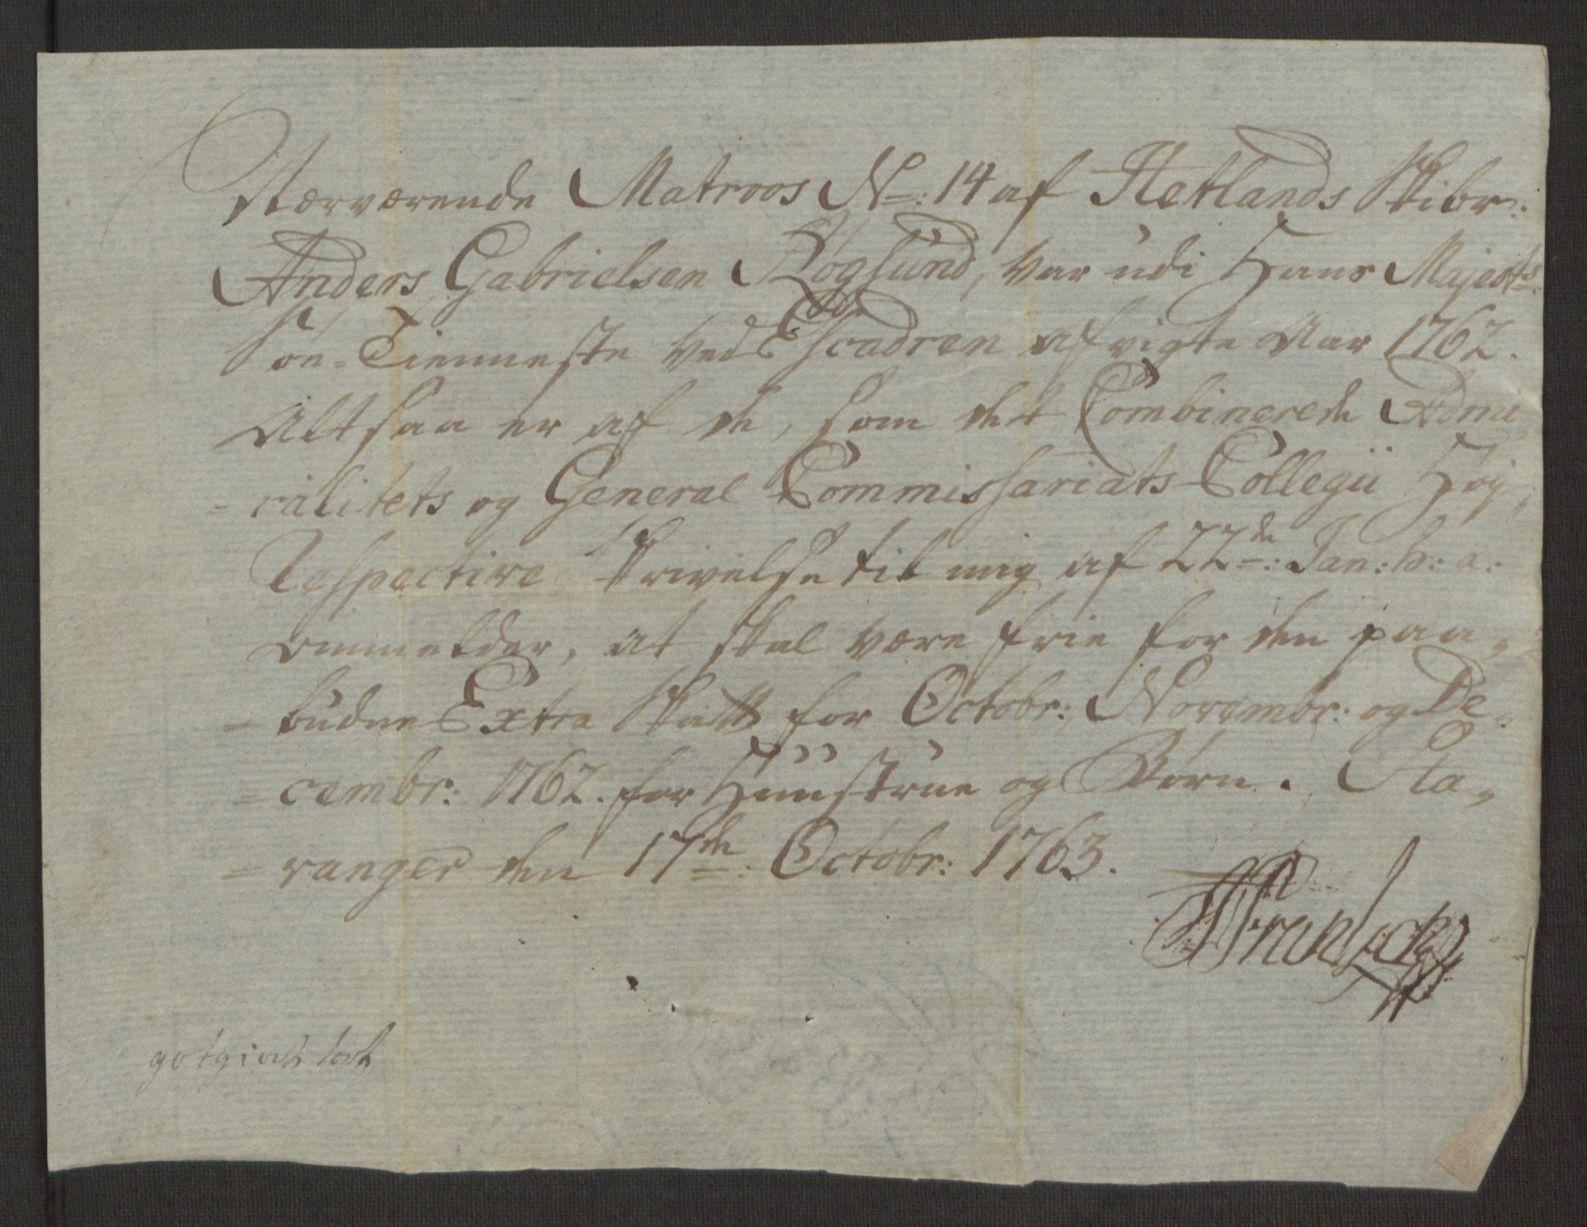 Nærværende Matroos No: 14 af Hetlands Skibr:
Anders Gabrielsen Rogsund, var udi Hans Majestts:
Søe-Tienneste ved Escadren afvigte Aar 1762.
Altsaa er af de, som det Combinerede Admi
-ralitets og General Commissariats-Collegii Høy,
Respective Skrivelse til mig af 22de: Jan: h: a:
ommelder, at skal være frie for den paa,
-budne Extra Skatt for Octobr: Novembr: og De,
-cembr: 1762. for Huustrue og Børn. Sta,
-vanger den 17de: Octobr: 1763.